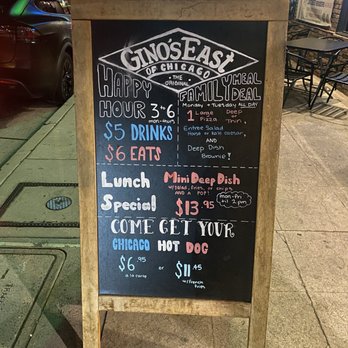 GINO'S EAST
OF CHICAGO
THE ORIGINAL
HAPPY
HOUR 3 to 6
mon-thurs
$5 DRINKS
$6 EATS
FAMILY MEAL
DEAL
Monday + Tuesday ALL DAY
1 Large Pizza Deep or Thin,
Entree Salad
House or
Caesar,
AND
Deep Dish
Brownie!
Lunch
Special
Mini Deep Dish
w/ Salad, fries, or chips
AND A POP!
$13.95
mon-fri
til 2pm
COME GET YOUR
CHICAGO HOT DOG
$6.95 or $11.45
a la carte
w/ french
fries